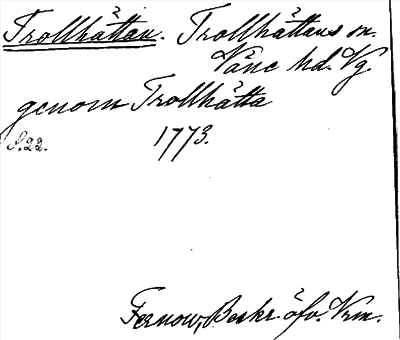 Trollhättan. Trollhättans sn.
Väne hd. Vg
genom Trollhätta
S. 22. 1773.
Fernow, Beskr. öfv. Vrm.